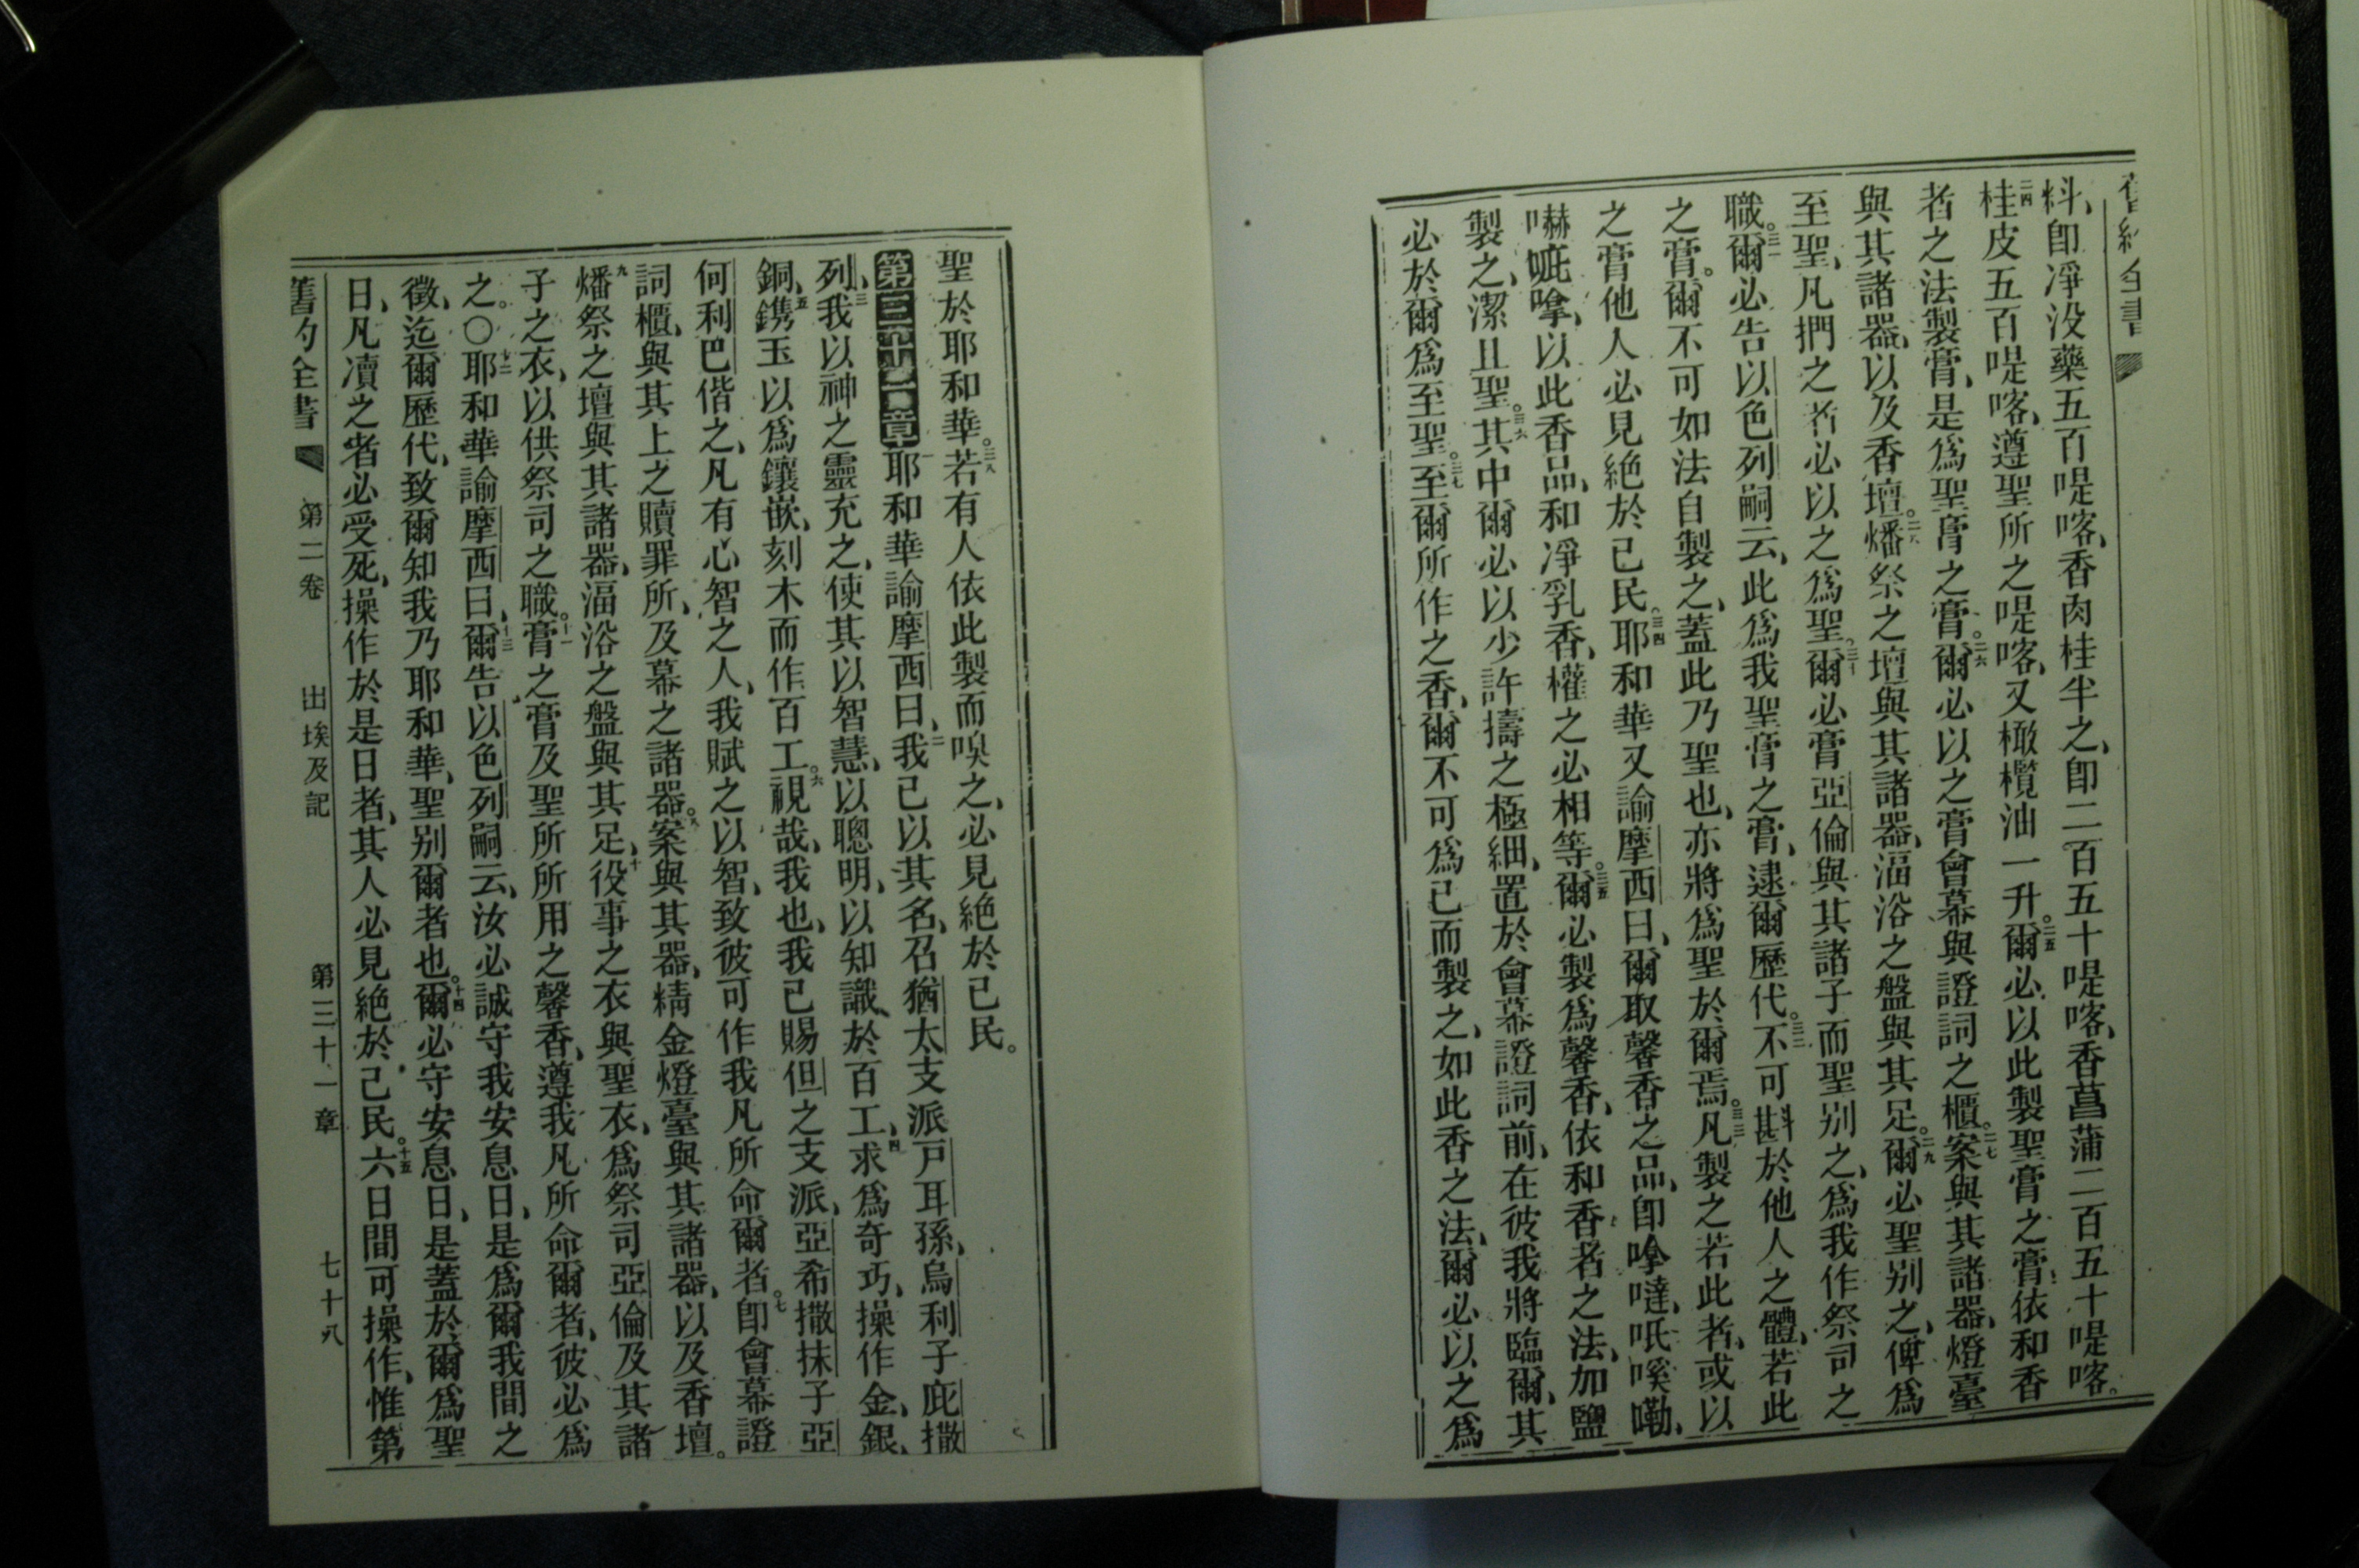 舊約全書
料、卽淨没藥五百㖷喀、香肉桂半之、卽二百五十㖷喀、香菖蒲二百五十㖷喀。
二四桂皮五百㖷喀、遵聖所之㖷喀、又橄欖油一升。二五爾必以此製聖膏之膏、依和香
者之法製膏、是爲聖膏之膏。二六爾必以之膏會幕與證詞之櫃。二七案與其諸器、燈臺
與其諸器、以及香壇。二八燔祭之壇與其諸器、湢浴之盤與其足。二九爾必聖別之、俾爲
至聖、凡捫之者必以之爲聖。三十爾必膏亞倫與其諸子而聖別之、爲我作祭司之
職。三一爾必告以色列嗣云、此爲我聖膏之膏、逮爾歷代。三二不可斟於他人之體、若此
之膏。爾不可如法自製之、蓋此乃聖也、亦將爲聖於爾焉。三三凡製之若此者、或以
之膏他人必見絕於己民。三四耶和華又諭摩西曰、爾取馨香之品、卽㖮噠、呧㗨嘞、
嚇㖸㖮、以此香品、和淨乳香、權之必相等。三五爾必製爲馨香、依和香者之法、加鹽
製之、潔且聖。三六其中爾必以少許擣之極細、置於會幕證詞前、在彼我將臨爾、其
必於爾爲至聖。三七至爾所作之香、爾不可爲己而製之、如此香之法、爾必以之爲
聖於耶和華。三八若有人依此製而嗅之、必見絕於己民。
第三十一章 一耶和華諭摩西曰、二我已以其名、召猶太支派戸耳孫、烏利子庇撒
列、三我以神之靈充之、使其以智慧、以聰明、以知識、於百工、四求爲奇巧、操作金、銀、
銅、五鐫玉以爲鑲嵌、刻木而作百工。六視哉、我也、我已賜但之支派、亞希撒抹子亞
何利巴偕之、凡有心智之人、我賦之以智、致彼可作我凡所命爾者。七卽會幕證
詞櫃、與其上之贖罪所、及幕之諸器。八案與其器、精金燈臺與其諸器、以及香壇。
九燔祭之壇與其諸器、湢浴之盤與其足、十役事之衣與聖衣、爲祭司亞倫及其諸
子之衣、以供祭司之職。十一膏之膏及聖所所用之馨香、遵我凡所命爾者、彼必爲
之。〇十二耶和華諭摩西曰、十三爾告以色列嗣云、汝必誠守我安息日、是爲爾我間之
徵、迄爾歷代、致爾知我乃耶和華、聖別爾者也。十四爾必守安息日、是蓋於爾爲聖
日、凡凟之者必受死、操作於是日者、其人必見絕於己民。十五六日間可操作、惟第
舊約全書 第二卷 出埃及記 第三十一章 七十八